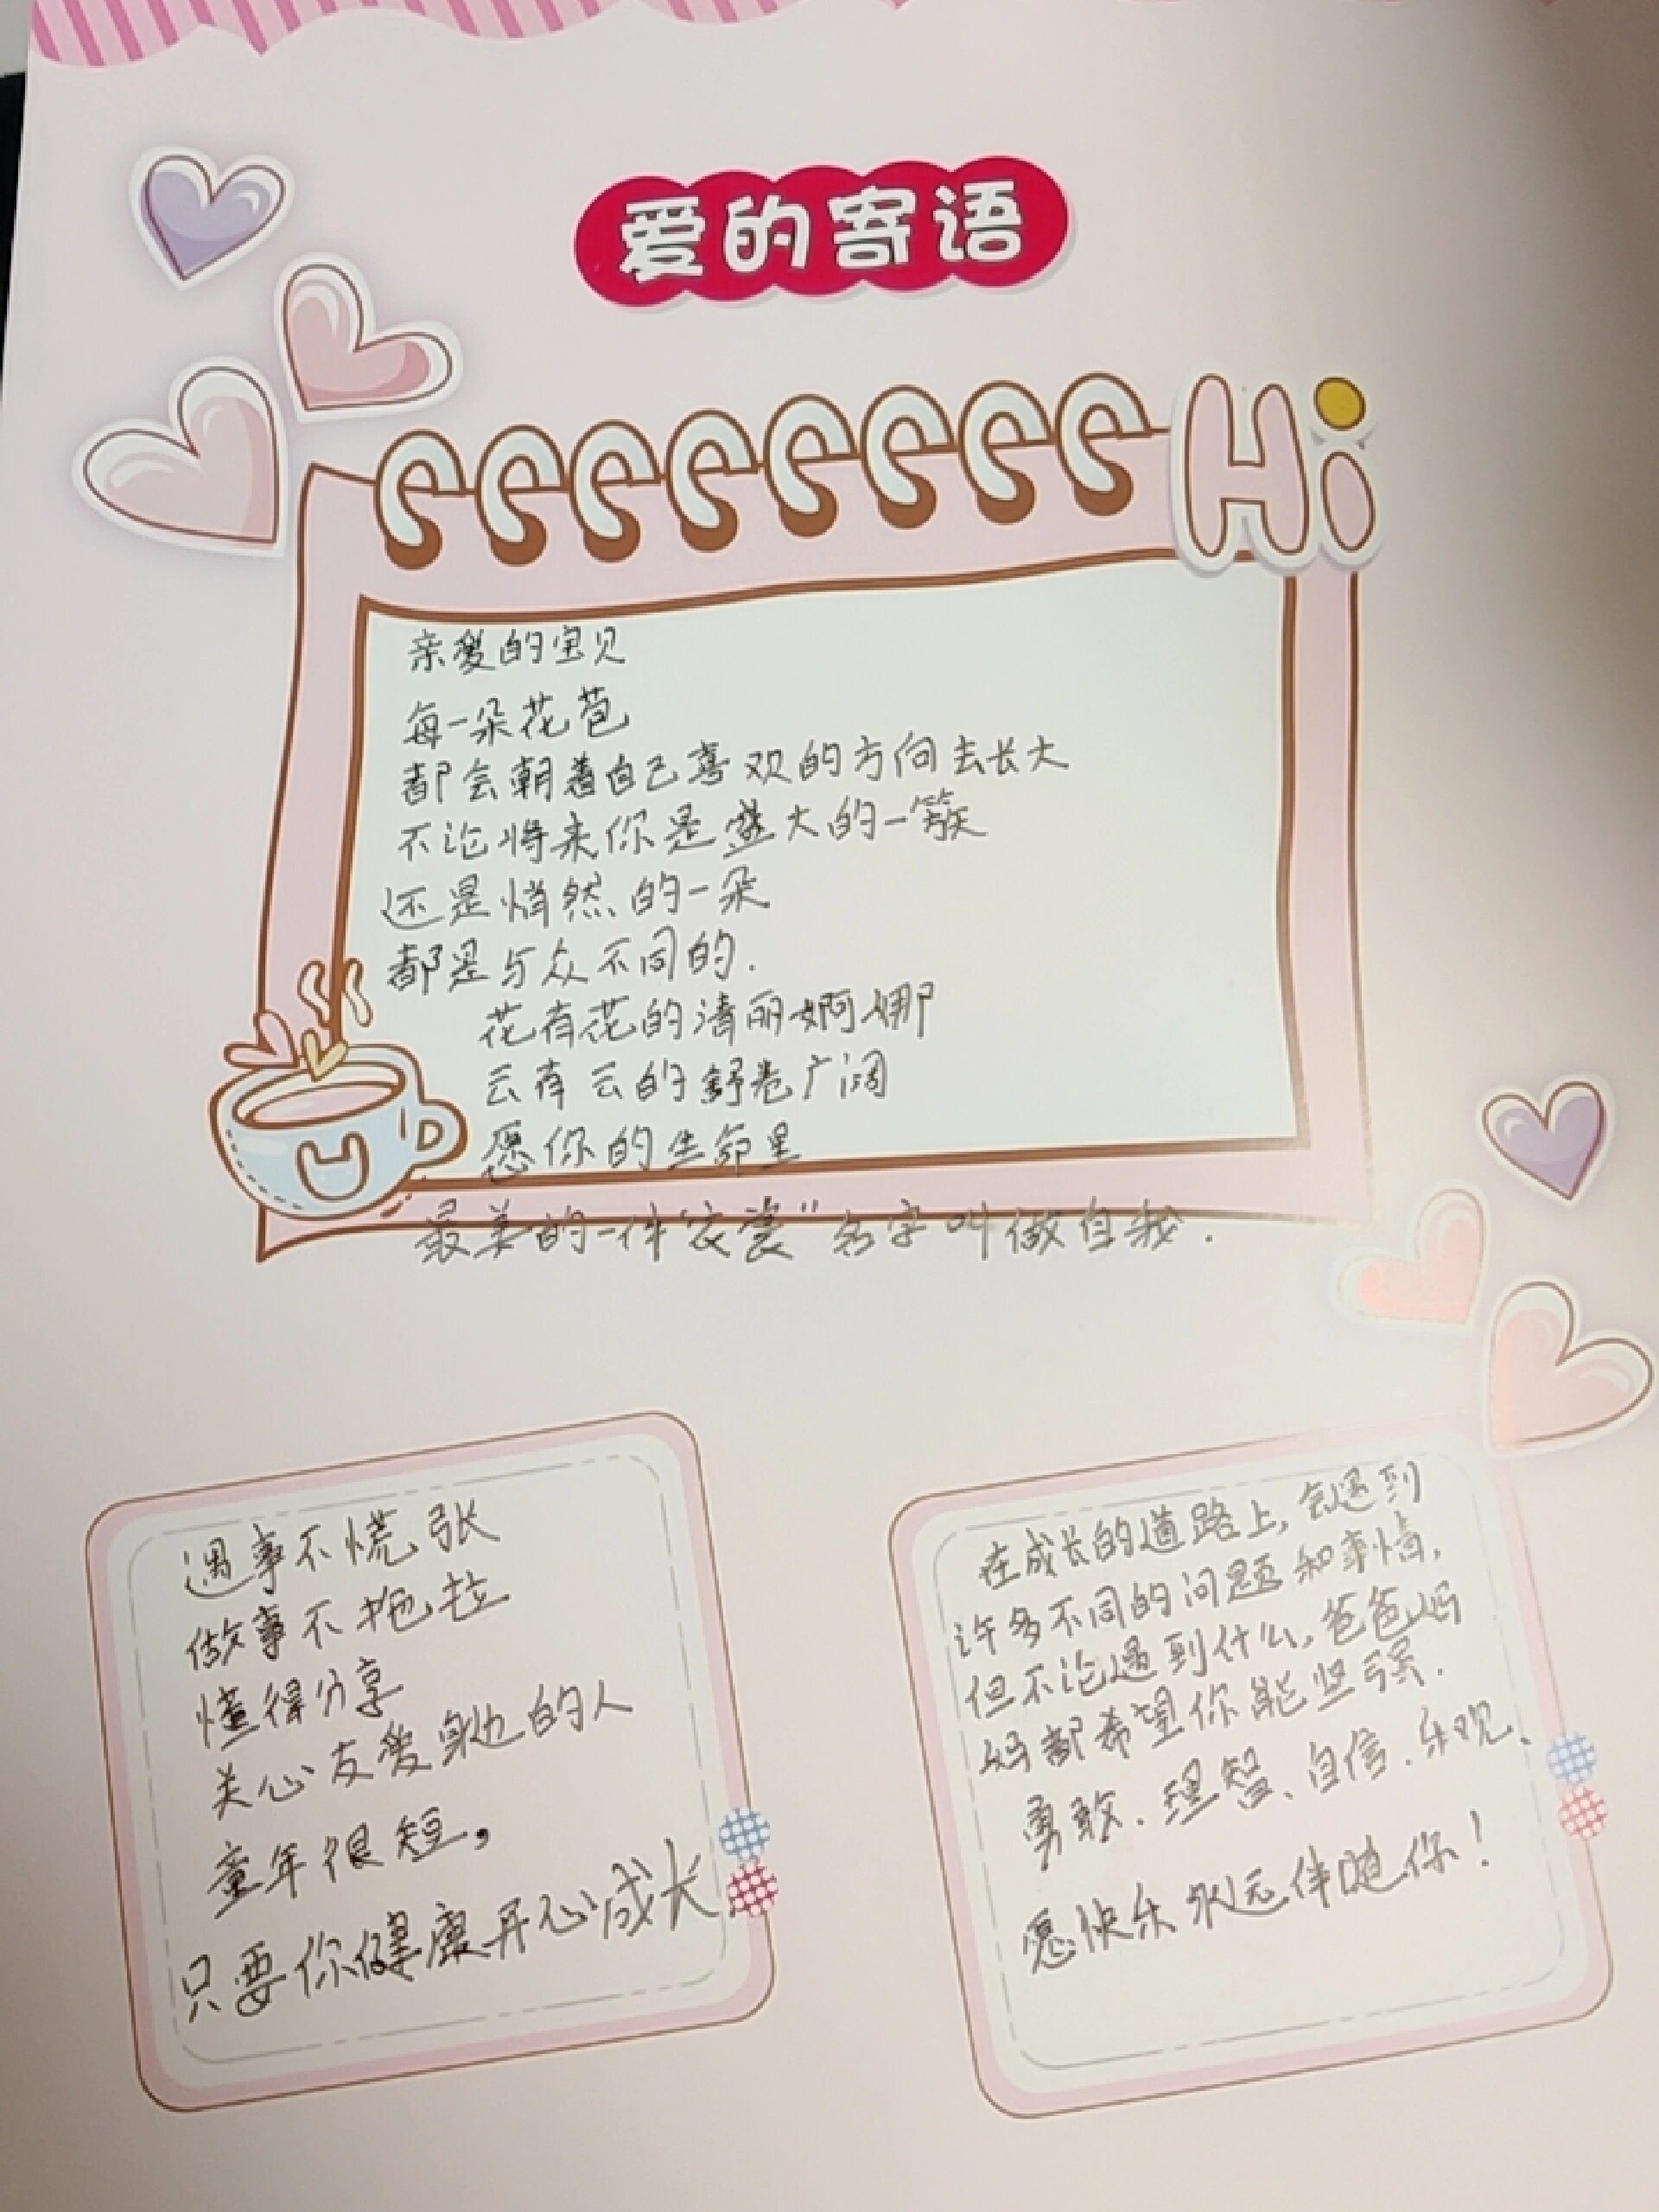 爱的寄语
Hi
亲爱的宝贝
每一朵花苞
都会朝着自己喜欢的方向去长大
不论将来你是盛大的一簇
还是悄然的一朵
都是与众不同的.
花有花的清丽婀娜
云有云的舒卷广阔
愿你的生命里
最美的一件"衣裳"名字叫做自我.
遇事不慌张
做事不拖拉
懂得分享
关心友爱身边的人
童年很短,
只要你健康开心成长.
在成长的道路上,会遇到
许多不同的问题和事情,
但不论遇到什么,爸爸妈
妈都希望你能坚强.
勇敢.理智、自信.乐观、
愿快乐永远伴随你!